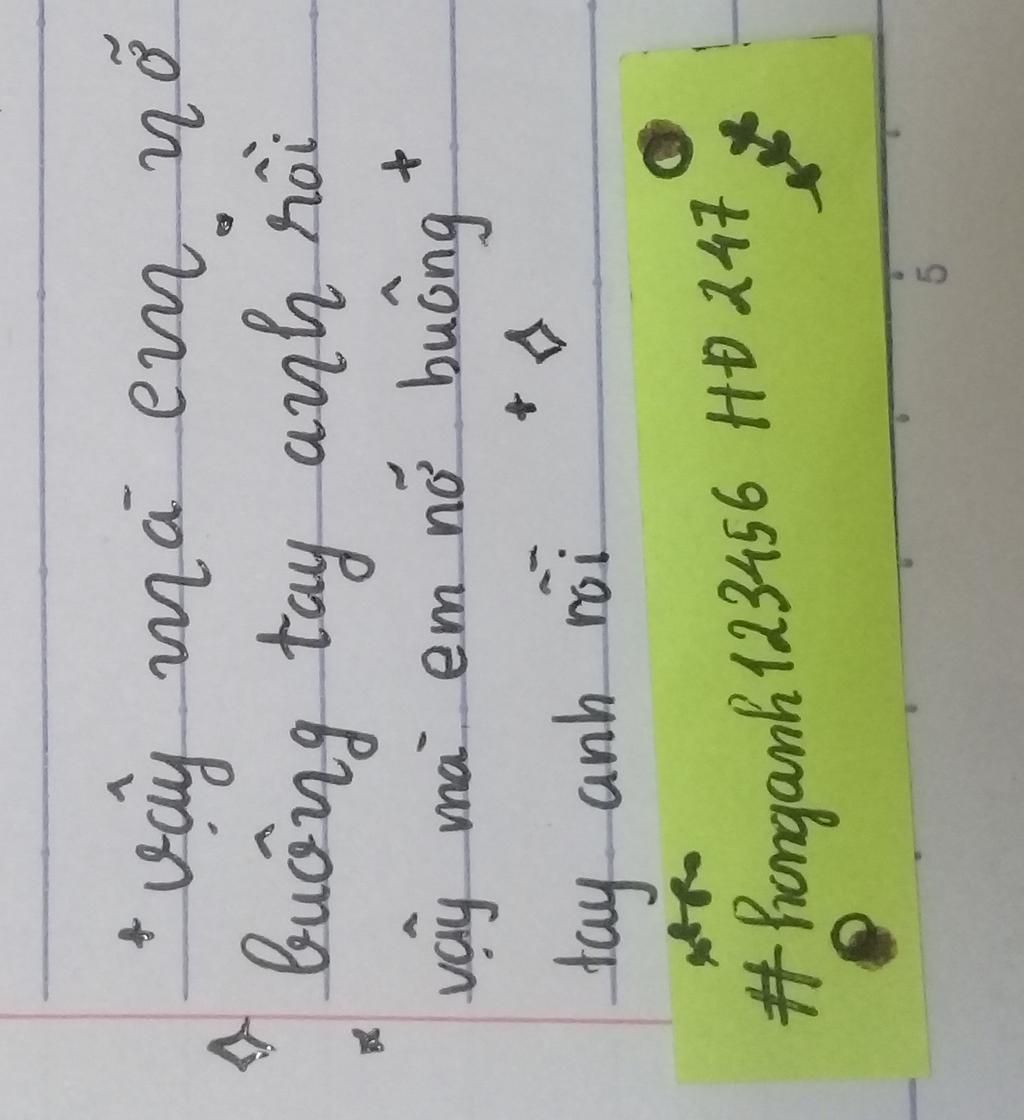 vậy mà em nỡ
buông tay anh rồi
vậy mà em nỡ buông
tay anh rồi
#honganh123456 HD 247
5